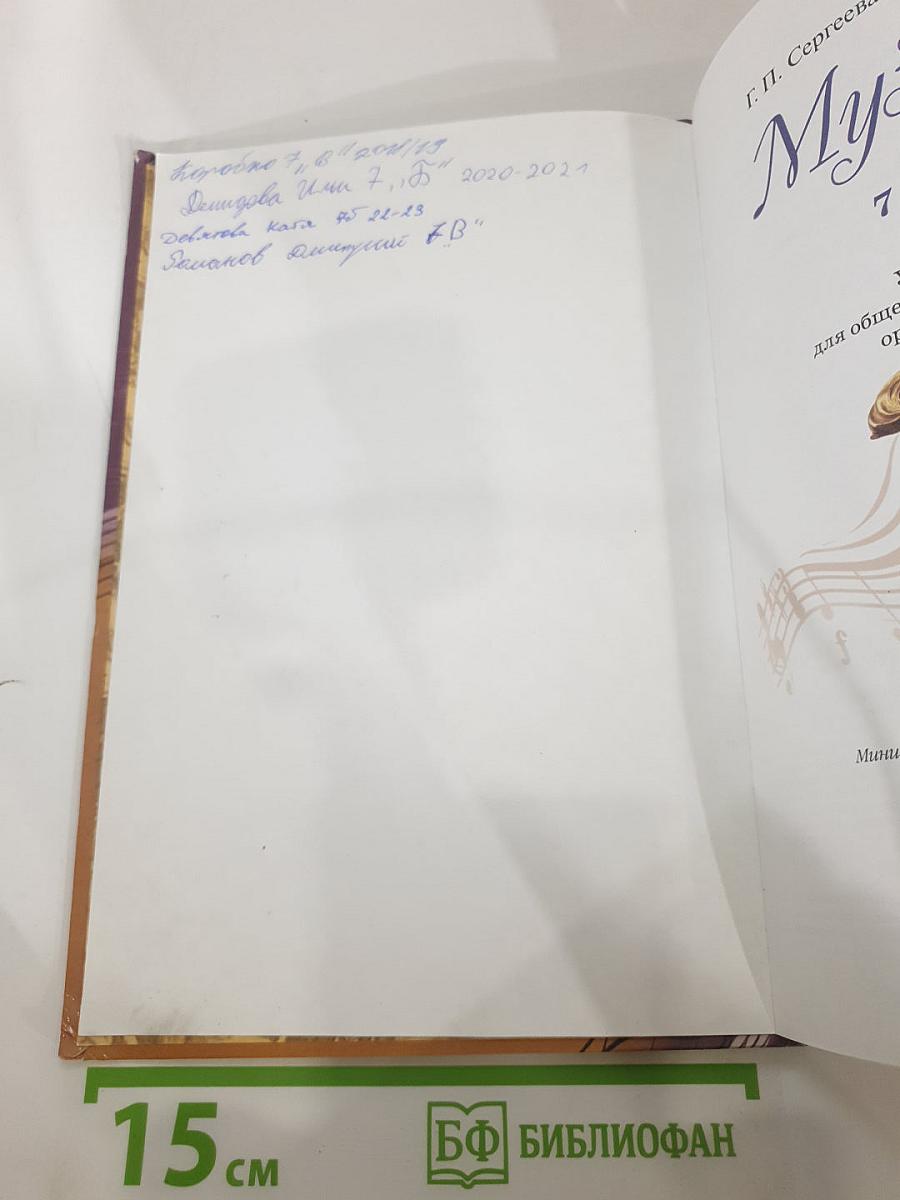 Коробко 7 „В" 2018/19
Демидова 7 „Б" 2020-2021
Девятова Катя 7б 22-23
Романов Дмитрий 7„В"
Г. П. Сергеева
Муз
7
для обще
ор
Мини
15 см
БФ БИБЛИОФАН